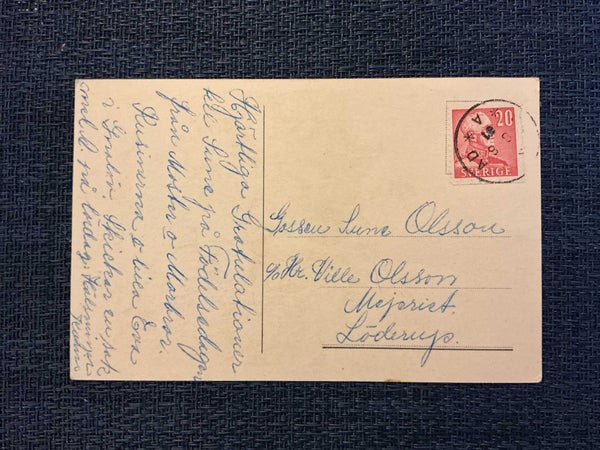 Hjärtliga Gratulationer
till Sune på Födelsedagen
från Moster o Morbror.
Kusinerna o lilla Eva
i Skickar en sak
med på lördag. Hälsningar
20
SVERIGE
Gossen Sune Olsson
c/o Hr. Ville Olsson
Mejeriet.
Löderup.